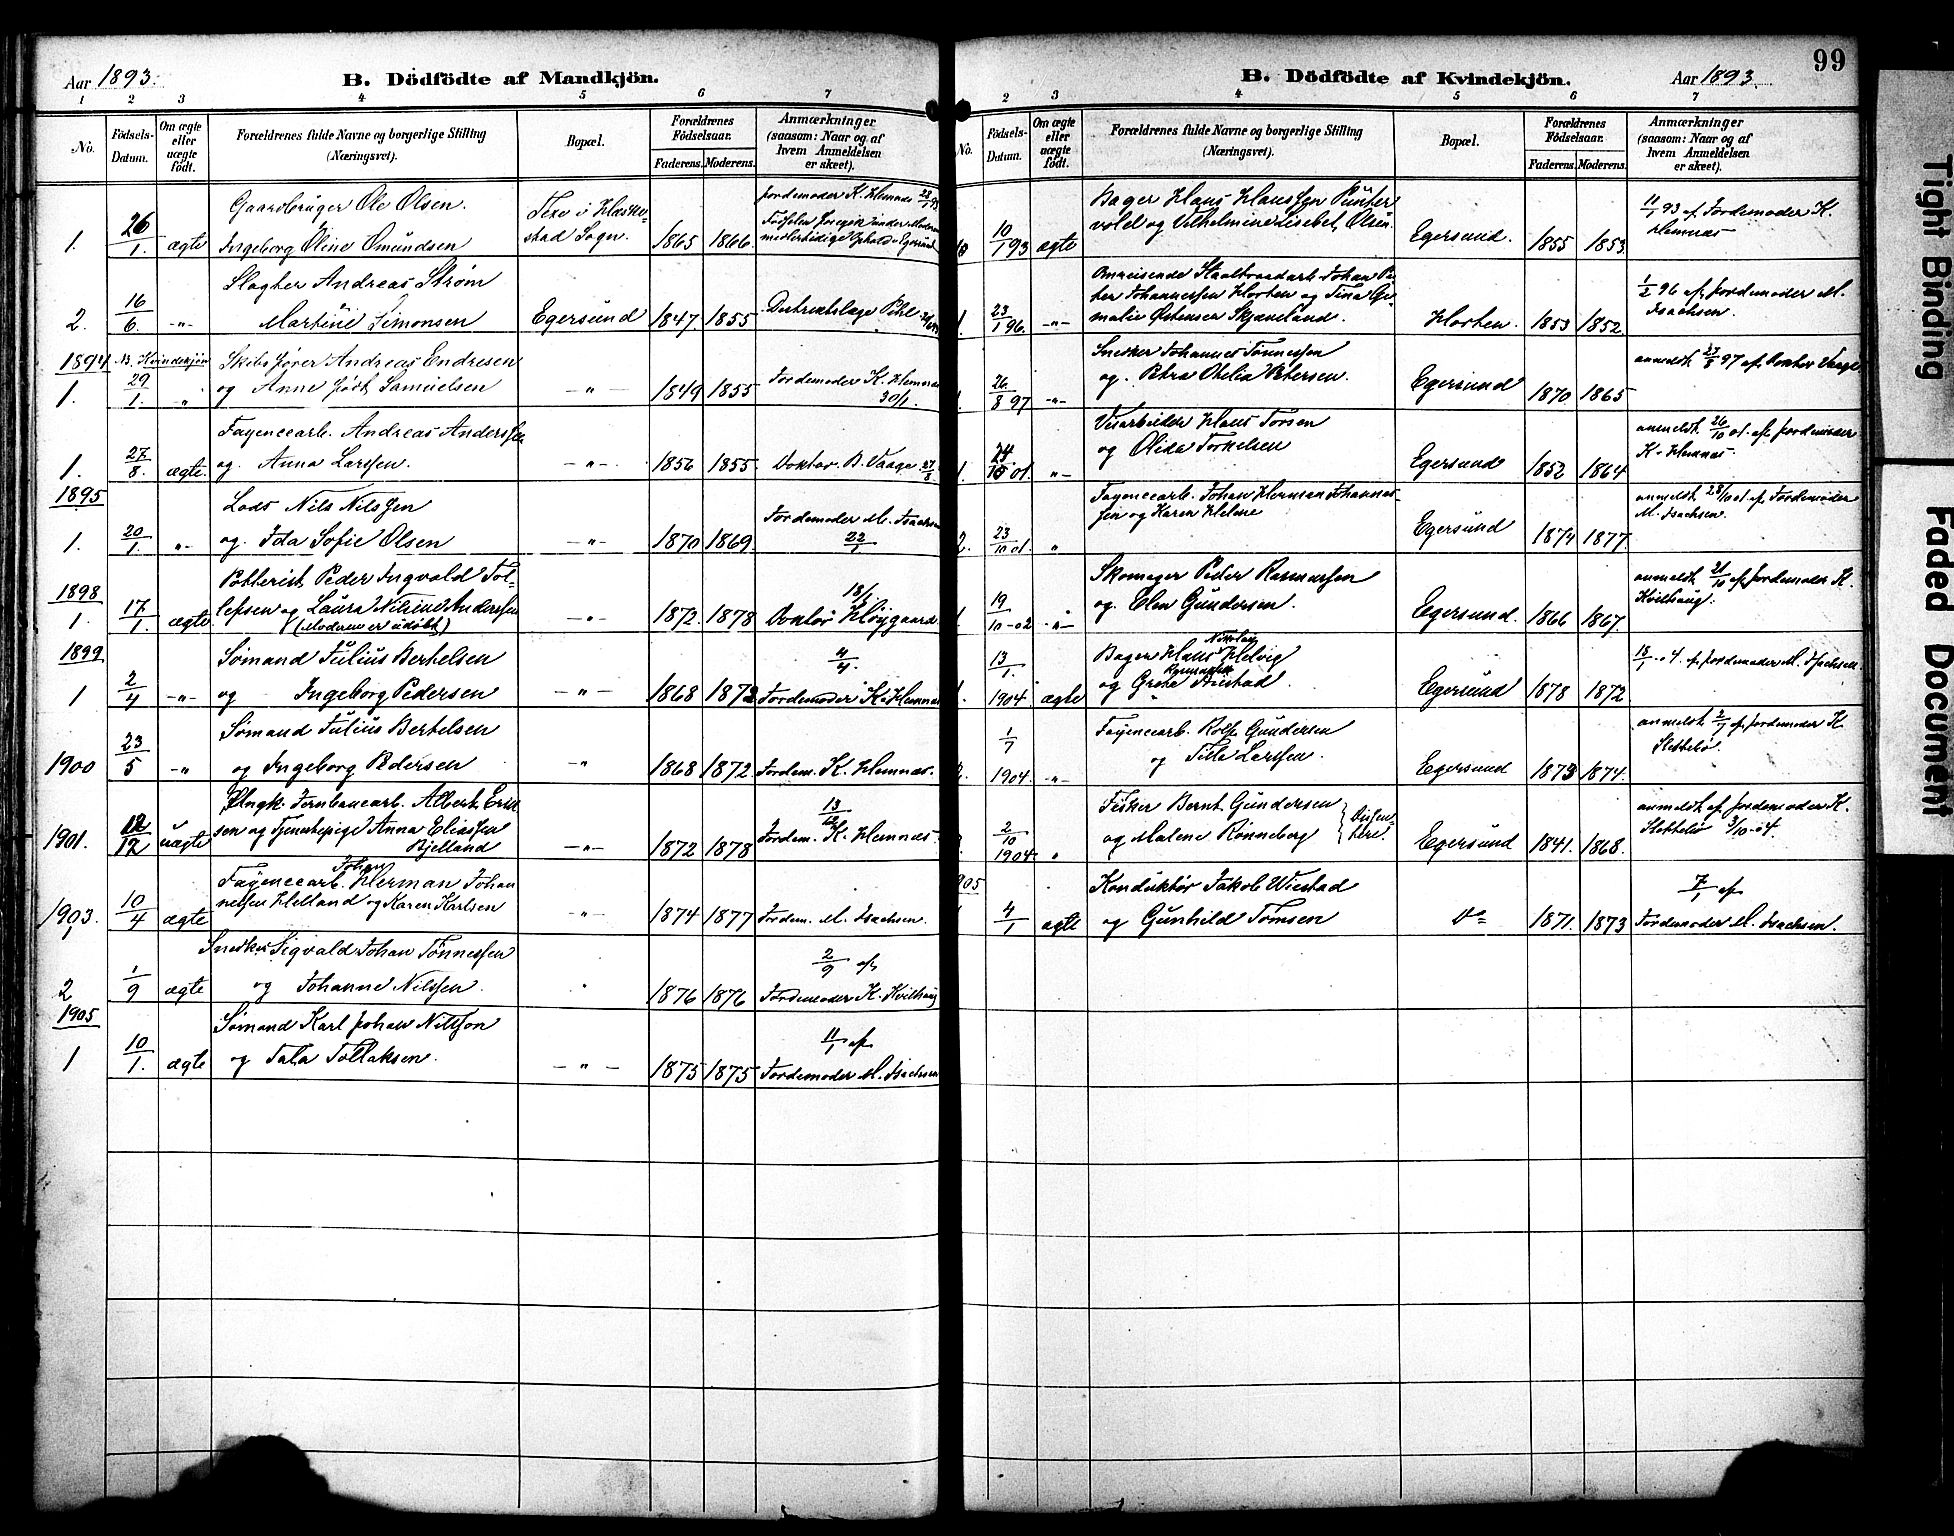 Aar 1893.
B. Dödfödte af Mandkjön.
1 2 3 4 5 6 7
No.
Födsels-Datum.
Om ægte eller uægte födt.
Forældrenes fulde Navne og borgerlige Stilling (Næringsvei).
Bopæl.
Forældrenes Födselsaar.
Faderens. Moderens.
Anmærkninger (saasom: Naar og af hvem Anmeldelsen er skeet).
Gaardbruger Ole Olsen.
1. 26/1. ægte Ingeborg Oline Omundsen
stad Sogn. 1865 1866.
Jordemoder K. Hemnes
Slagter Andreas Strøm
2. 16/6. -"- Martine Simonsen Egersund 1847 1855
1894 B. Kvindekjøn Skibsfører Andreas Endresen
1. 29/1. " og Anne født Samuelsen -"- 1849 1855 Jordemoder K. Hemnes 30/1.
Fayencearb. Andreas Anderssen
1. 27/8. ægte og Anna Larssen. -"- 1856 1855 Doktor B. Vaage 27/8
1895 Lods Nils Nilssen
1. 20/1. "- og Ida Sofie Olsen -"- 1870 1869. Jordemoder M. Isachsen 22/1
1898 Potterist Peder Ingvald Tol-
1. 17/1. ægte lefsen og Laura Anderssen -"- 1872 1878 18/1. Doktor Høygaard
(Moderen er udøbt)
1899 Sømand Julius Bertelsen 4/4.
1 2/4 -"- og Ingeborg Pedersen -"- 1868 1872 Jordemoder K. Hemnes
Sømand Julius Bertelsen
1900 23/5 -"- og Ingeborg Pedersen -"- 1868 1872 Jordem. K. Hemnæs.
Ungk. Jernbanearb. Albert Erik
1901. 12/12 uægte sen og Tjenestepige Anna Eliassen
Bjelland -"- 1872 1878 13/12 Jordem. K. Hemnæs
Johan
Fayencearb. Herman Johan
1903. 10/4 ægte nessen Helland og Karen Karlsen -"- 1874 1877 Jordem. M. Isachsen.
Snedker Sigvald Johan Tönnessen
2 1/9 ægte og Johanne Nilssen. " 1876 1876 2/9 af Jordemoder K. Kvilhaug
1905 Sømand Karl Johan Nilsson
1 10/1. ægte og Tala Tollaksen. -"- 1875 1875 11/1 af Jordemoder M. Isachsen
B. Dödfödte af Kvindekjön.
Aar 1893.
99
2 3 4 5 6 7
No.
Födsels-Datum.
Om ægte eller uægte födt.
Forældrenes fulde Navne og borgerlige Stilling (Næringsvei).
Bopæl.
Forældrenes Födselsaar.
Faderens. Moderens.
Anmærkninger (saasom: Naar og af hvem Anmeldelsen er skeet).
Bager Hans Hanssen Punter
10/1 93 ægte vold og Vilhelmine Lisebet Olsen Egersund. 1855 1853.
11/1 93 af Jordemoder K. Hemnæs
Omreisende Staaltraadarb. Johan Pe-
ter Johannessen Horten og Tina Ga-
23/1 96. -"- malie Østensen Skjæveland. Horten. 1853 1852.
1/2 96 af Jordemoder M. Isachsen.
Snedker Johannes Tønnessen
26/8 97 -"- og Petra Othelia Petersen. Egersund 1870 1865
anmeldt 27/8 97 af Doktor Vaage
Veiarbeider Hans Torsen
24/10 01. "- og Olida Torkelsen Egersund 1852 1864
anmeldt 26/10 01. af Jordemoder K. Hemnæs.
Fayencearb. Johan Herman Johannes-
2. 23/10 01. " sen og Karen Helene Egersund 1874 1877.
anmeldt 28/10 01 af Jordemoder M. Isachsen.
Skomager Peder Rasmussen
19/10-02 -"- og Elen Gundersen. Egersund. 1866 1867.
anmeldt 21/10 af Jordemoder K. Kvilhaug.
Nikolay
13/1. Bager Hans Helvig
1904. ægte og Grete Egersund 1878 1872
18/1-04. af Jordemoder M. Isachsen
1/7 Fayencearb. Rolf Gundersen
1904. -"- og Tilla Larssen. Egersund 1873 1874.
anmeldt 2/7 af Jordemoder K. Slettebø.
Fisker Bernt Gundersen
2/10 1904 " og Malene Rønneberg Dissen-tere. Egersund 1841. 1868.
anmeldt af Jordemoder K. Slettebø 3/10-04.
905 Konduktør Jakob Wiestad
4/1 ægte og Gunhild Tomsen Do 1871. 1873
7/1 af Jordemoder M. Isachsen.
Tight Binding
Faded Document